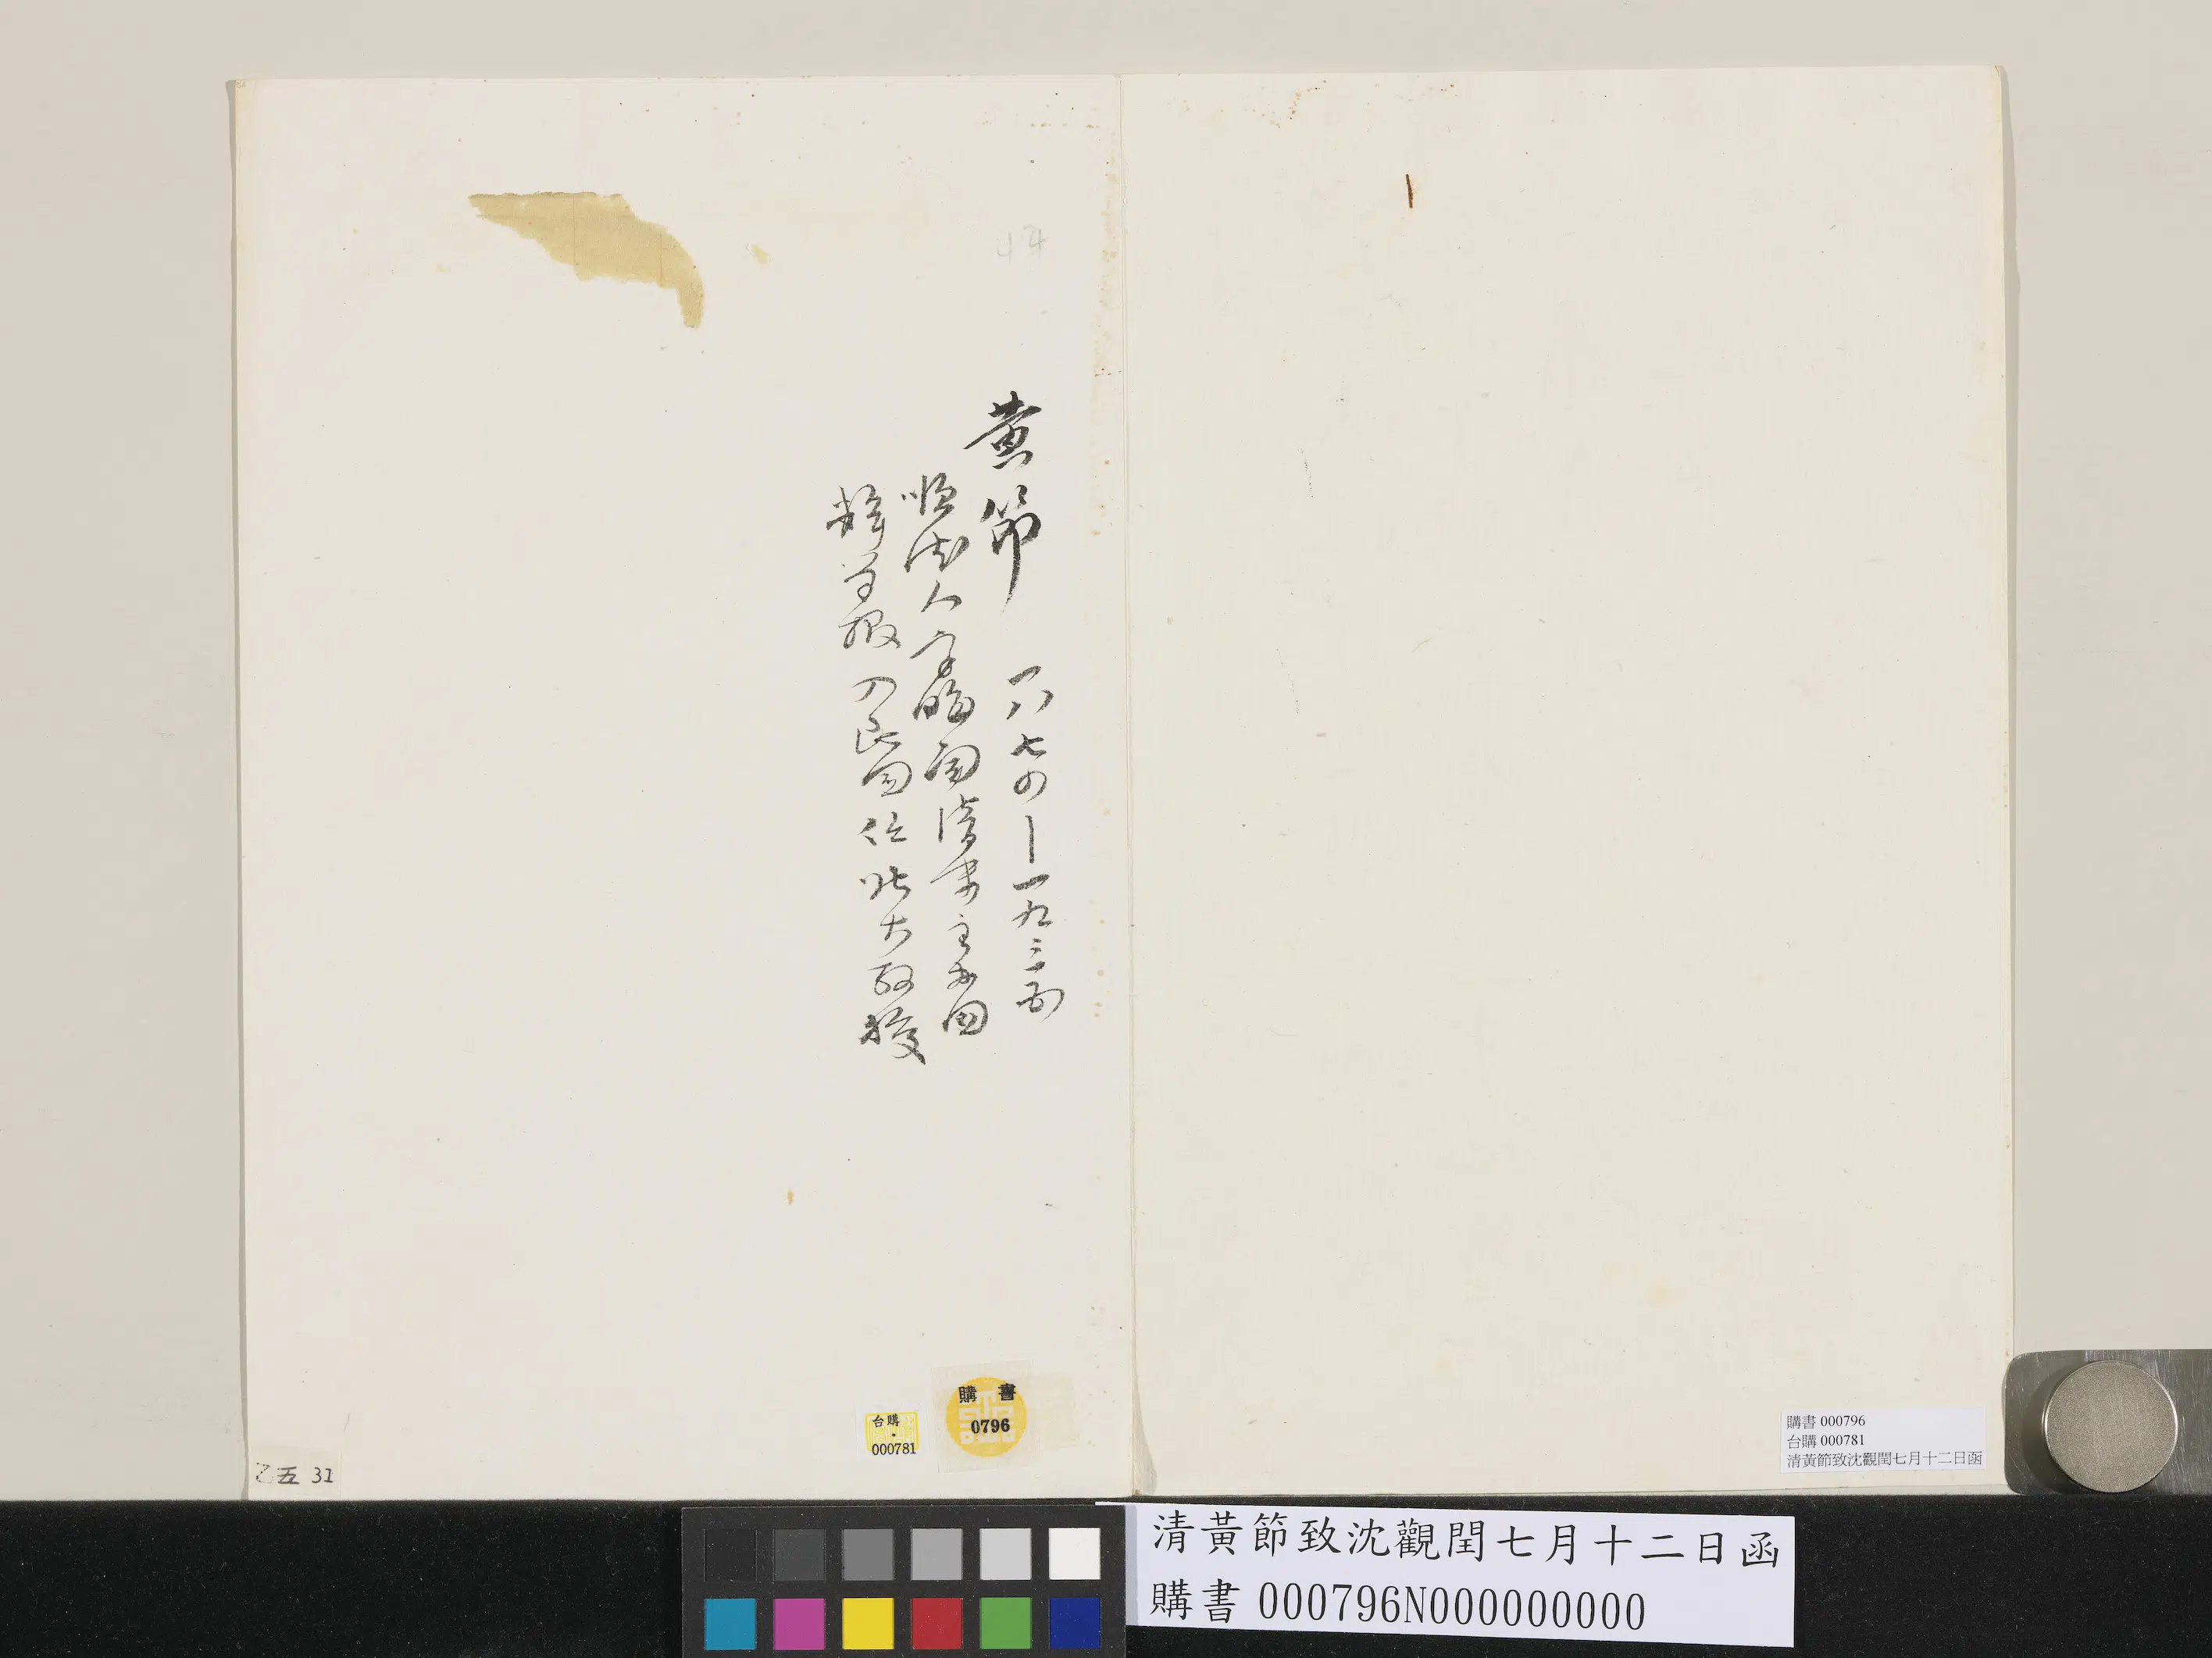 44
黄節
一八七四—一九三五
順德人字晦聞清末主办国
粹学报入民国任北大教授
台購
000781
購書
0796
乙五 31
購書 000796
台購 000781
清黃節致沈觀閏七月十二日函
清黃節致沈觀閏七月十二日函
購書 000796N000000000